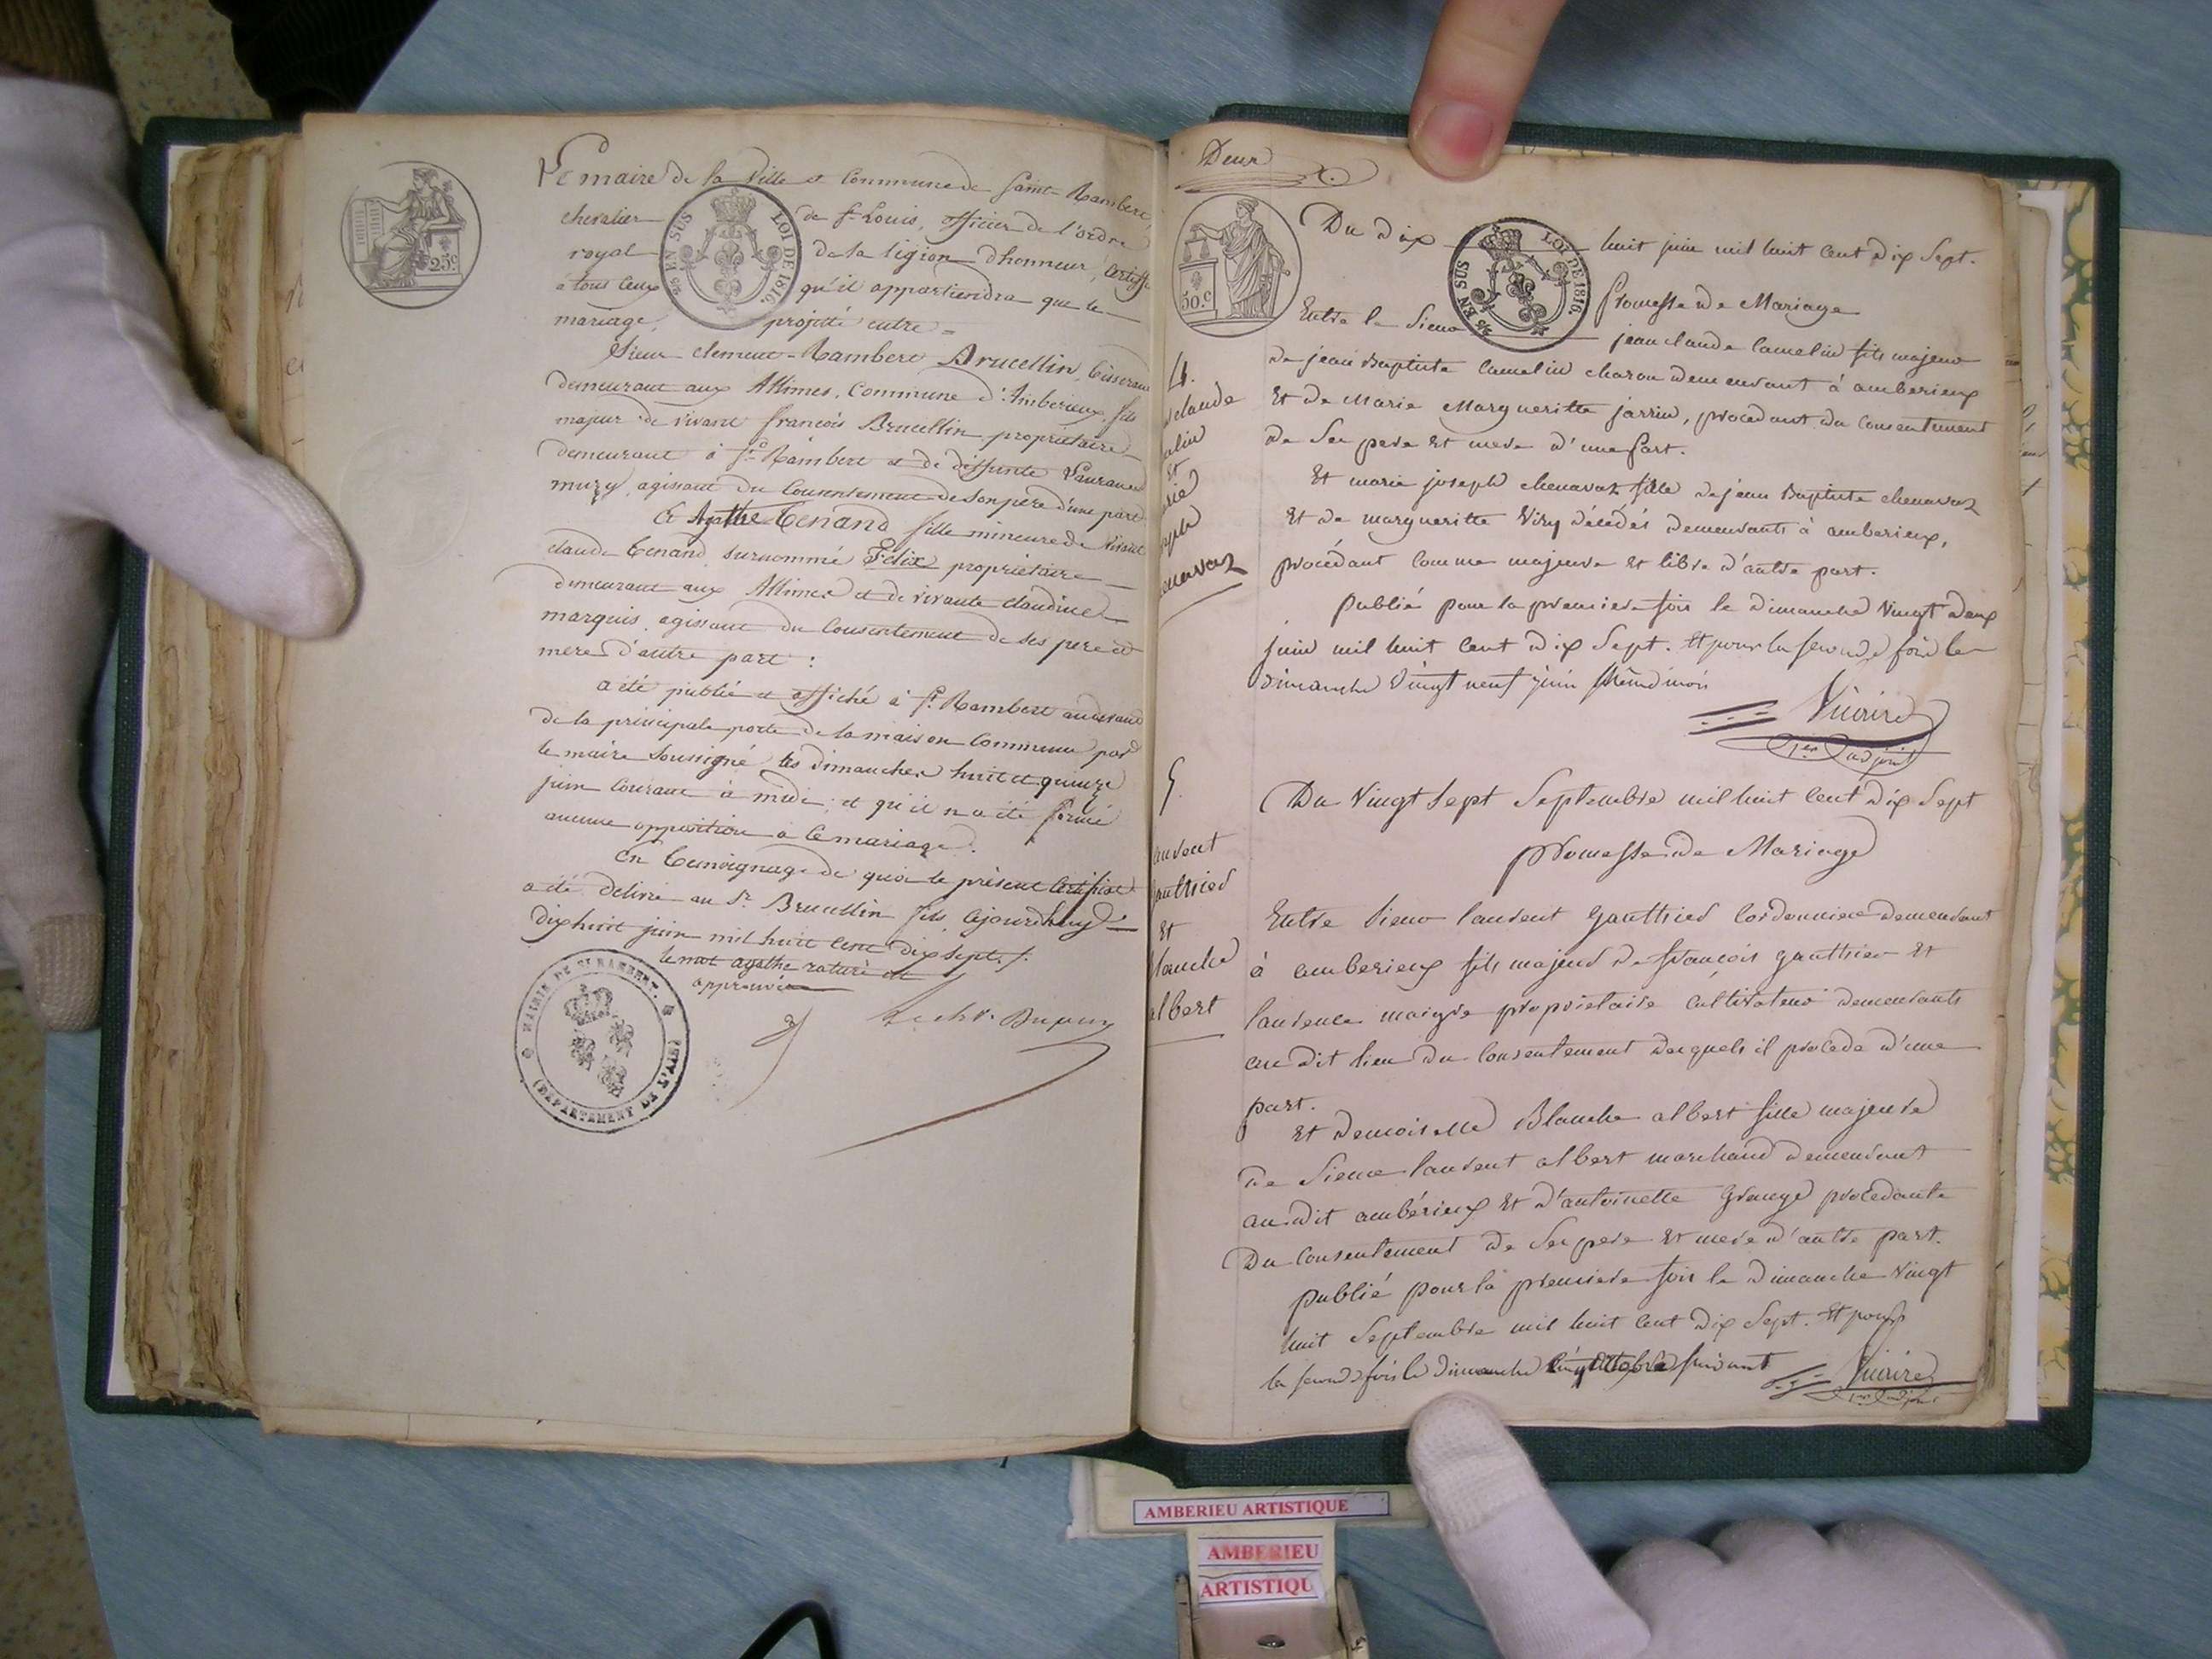 Le maire de la Ville et Commune de Saint-Rambert,
chevalier de St Louis, officier de l'ordre
royal de la légion d'honneur, certifie
à tous ceux qu'il appartiendra que le
mariage, projetté entre =
Sieur clement-Rambert Brucellin, tisserand
demeurant aux Allimes, Commune d'Amberieux, fils
majeur de vivant françois Brucellin, proprietaire
demeurant à St Rambert et de deffunte
agissant du Consentement de son père d'une part
Et Agathe Tenand fille mineure de vivant
claude Tenand, surnommé Félix proprietaire
demeurant aux Allimes et de vivante claudine
marquis, agissant du Consentement de ses pere et
mere d'autre part :
a été publié et affiché à St Rambert audevant
de la principale porte de la maison Commune par
le maire soussigné les dimanches huit et quinze
juin Courant à midi, et qu'il n'a été formé
aucune opposition à ce mariage.
En temoignage de quoi le présent Certificat
a été délivré au Sr Brucellin fils, cejourd'huy
dix huit juin mil huit cent dix sept ./.
le mot agathe raturé et
approuvé
Le chr. Dupuy
25 c
2/5 EN SUS LOI DE 1816.
MAIRIE DE ST RAMBERT.
(DÉPARTEMENT DE L'AIN)
Deux
50 c
2/5 EN SUS LOI DE 1816.
Du dix huit juin mil huit cent dix Sept.
Promesse de Mariage
Entre le Sieur jean claude Camelin fils majeur
de jean Baptiste Camelin charon demeurant à amberieux
Et de Marie Margueritte jarrin, procedant du consentement
de Ses pere Et mere d'une part.
Et marie joseph chenavaz fille de jean Baptiste chenavaz
Et de margueritte Viry décédés demeurants à amberieux,
procédant comme majeure et libre d'autre part.
publié pour la premiere fois le dimanche Vingt deux
juin mil huit cent dix Sept. Et pour la seconde fois le
dimanche vingt neuf juin même mois
Vicaire
1er adjoint
4.
claude
melin
Et
rie
seph
enavaz
Du Vingt Sept Septembre mil huit cent dix Sept
promesse de Mariage
Entre Sieur laurent gauthier Cordonnier demeurant
à amberieux fils majeur de françois gauthier Et
laurence maigre proprietaire cultivateur demeurants
au dit lieu du Consentement desquels il procede d'une
part.
Et demoiselle Blanche albert fille majeure
de Sieur laurent albert marchand demeurant
au dit ambérieux Et d'antoinette grange procedante
Du Consentement de Ses pere Et mere d'autre part.
publié pour la premiere fois le Dimanche Vingt
huit Septembre mil huit cent dix Sept. Et pour
la seconde fois le dimanche cinq octobre suivant
Vicaire
1er adjoint
5.
laurent
gauthier
Et
Blanche
albert
AMBERIEU ARTISTIQUE
AMBERIEU
ARTISTIQU